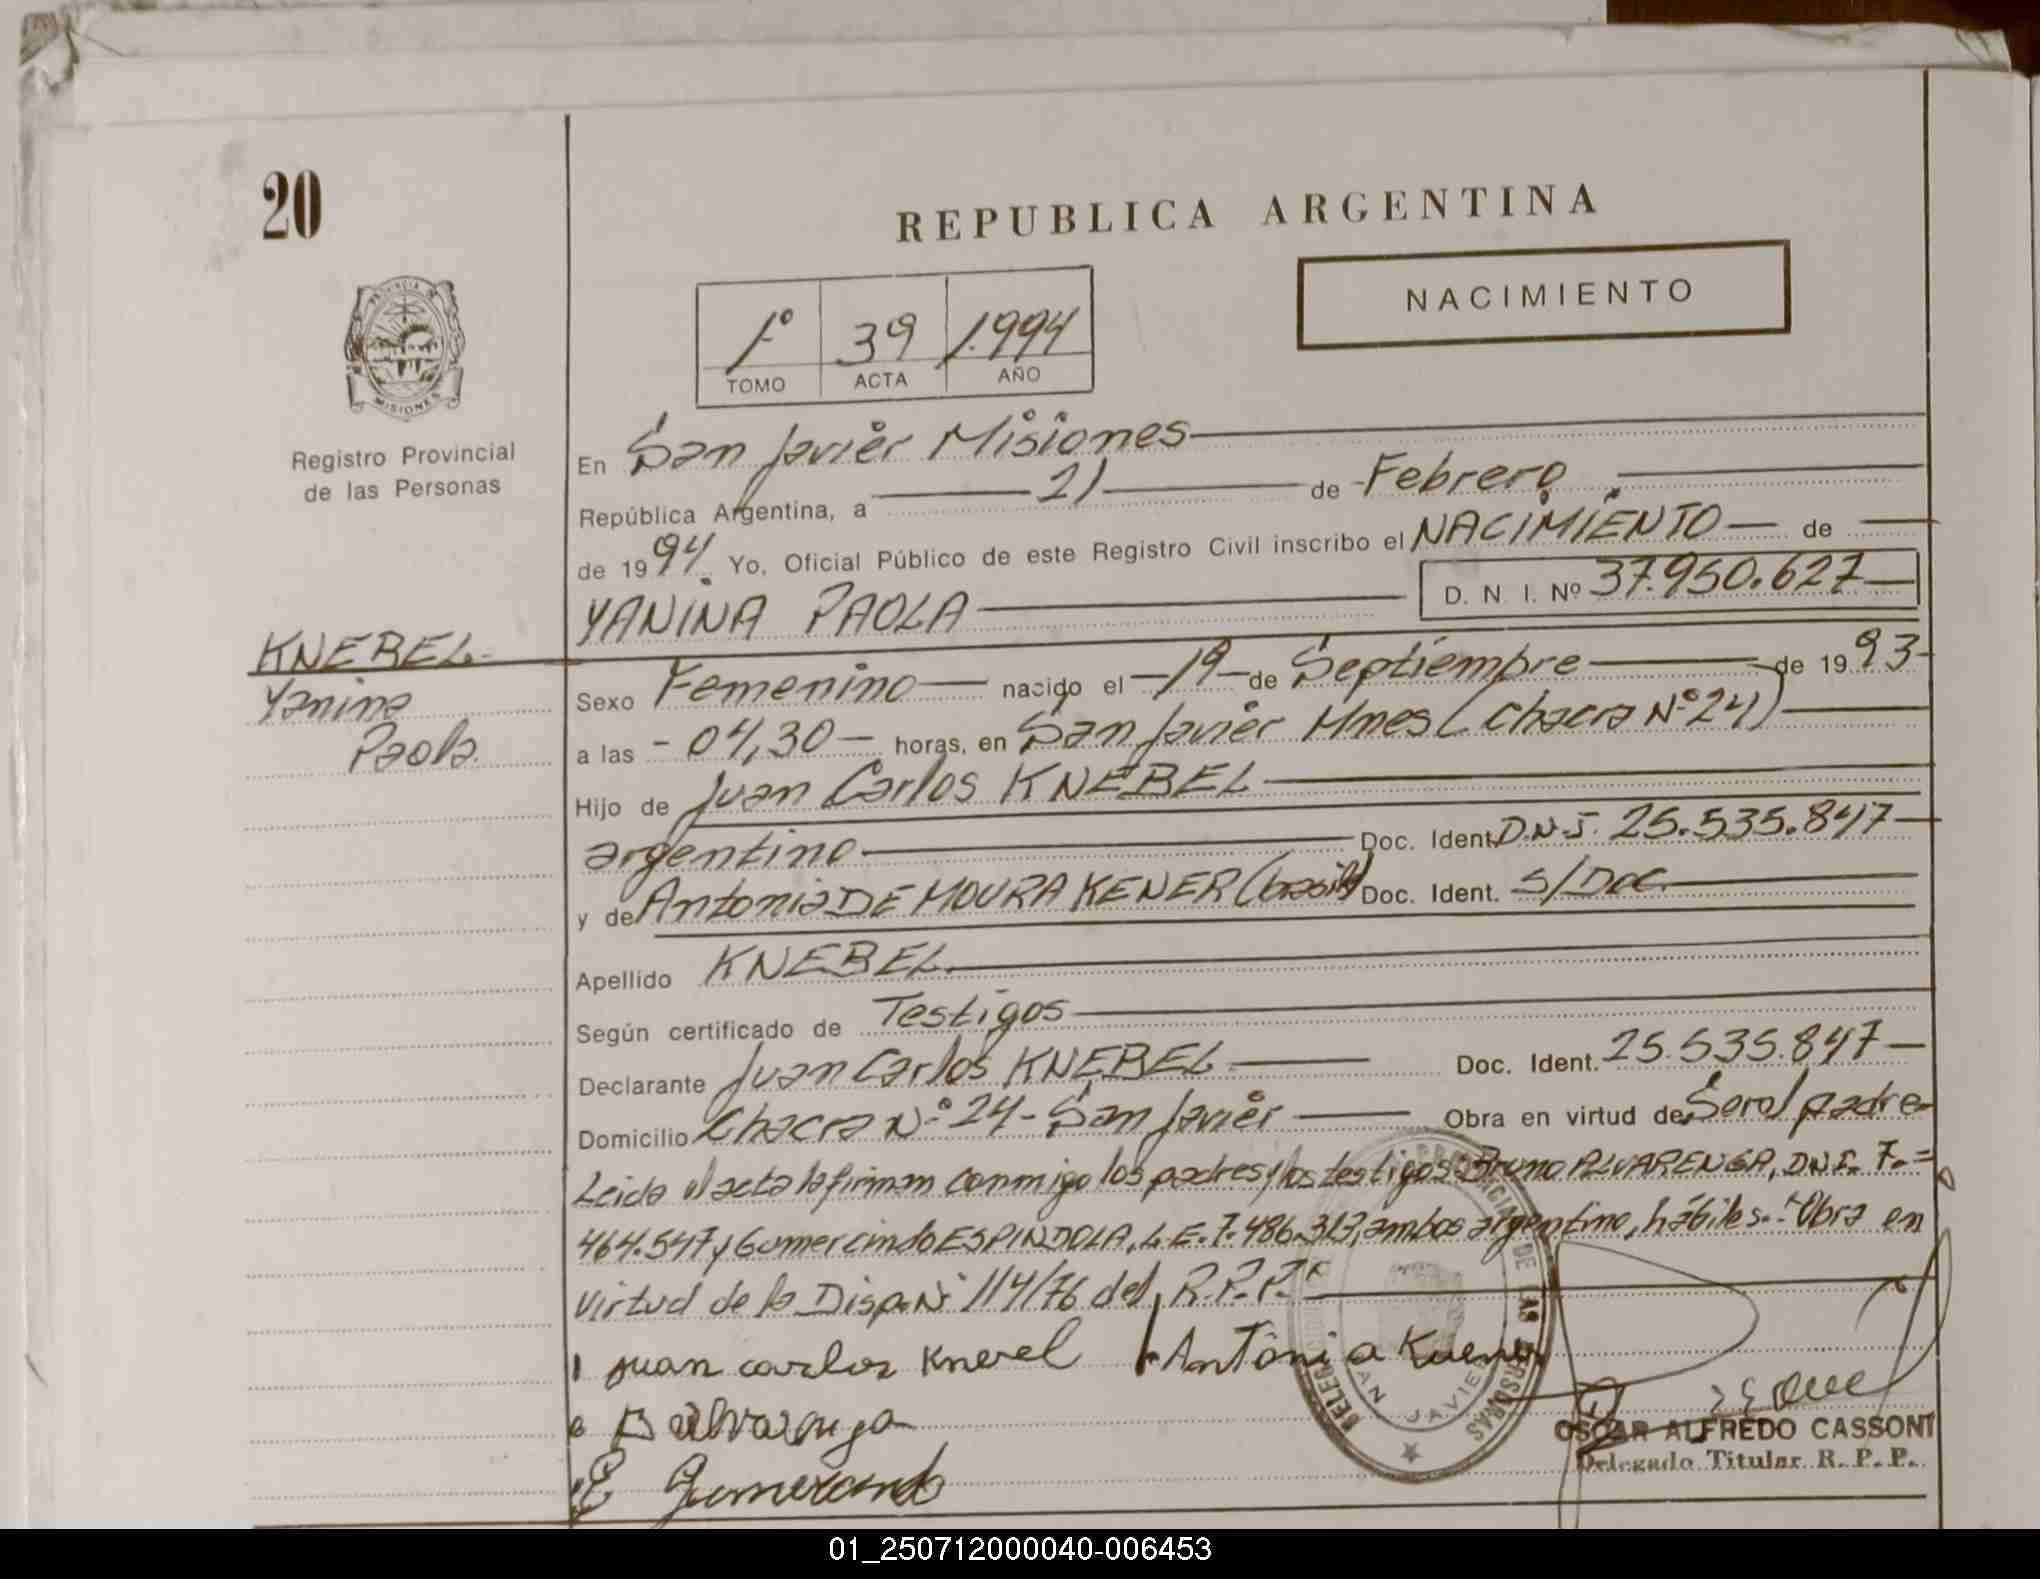 20
REPUBLICA ARGENTINA
NACIMIENTO
1º 39 1.994
TOMO ACTA AÑO
PROVINCIA DE
MISIONES
Registro Provincial
de las Personas
En San Javier Misiones
República Argentina, a 21 de Febrero
de 1994. Yo, Oficial Público de este Registro Civil inscribo el NACIMIENTO de
YANINA PAOLA D. N. I. Nº 37.950.627
KNEBEL
Yanina
Paola.
Sexo Femenino nacido el -19- de Septiembre de 1993
a las - 04,30 - horas, en San Javier Mnes (chacra Nº 24)
Hijo de Juan Carlos KNEBEL
argentino Doc. Ident. D.N.I. 25.535.847
y de Antonia DE MOURA KENER (brasil) Doc. Ident. S/Doc.
Apellido KNEBEL
Según certificado de Testigos
Declarante Juan Carlos KNEBEL Doc. Ident. 25.535.847
Domicilio Chacra Nº 24 - San Javier Obra en virtud de Ser el padre
Leida el acta la firman conmigo los padres y los testigos Bruno ALVARENGA, D.N.I. 7.=
464.547 y Gumercindo ESPINDOLA, L.E. 7.486.313, ambos argentino, hábiles.- Obra en
virtud de la Disp. Nº 114/76 del R.P.P.
Juan carlos Knevel Antônia Kuener
B alvarenga
E Gumercindo
SAN JAVIER
OSCAR ALFREDO CASSONI
Delegado Titular R. P. P.
01_250712000040-006453